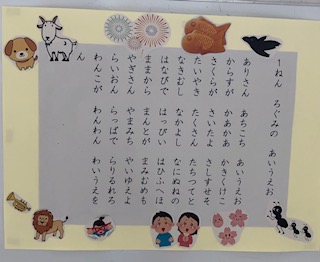 1ねん ろぐみの あいうえお
ありさん あちこち あいうえお
からすが かあかあ かきくけこ
さくらが さいたよ さしすせそ
たいやき たくさん たちつてと
なきむし なかよし なにぬねの
はなびで はっぴい はひふへほ
ままから まんとが まみむめも
やぎさん やいゆえよ
らいおん らっぱで らりるれろ
わんこが わんわん わいうえを
ん